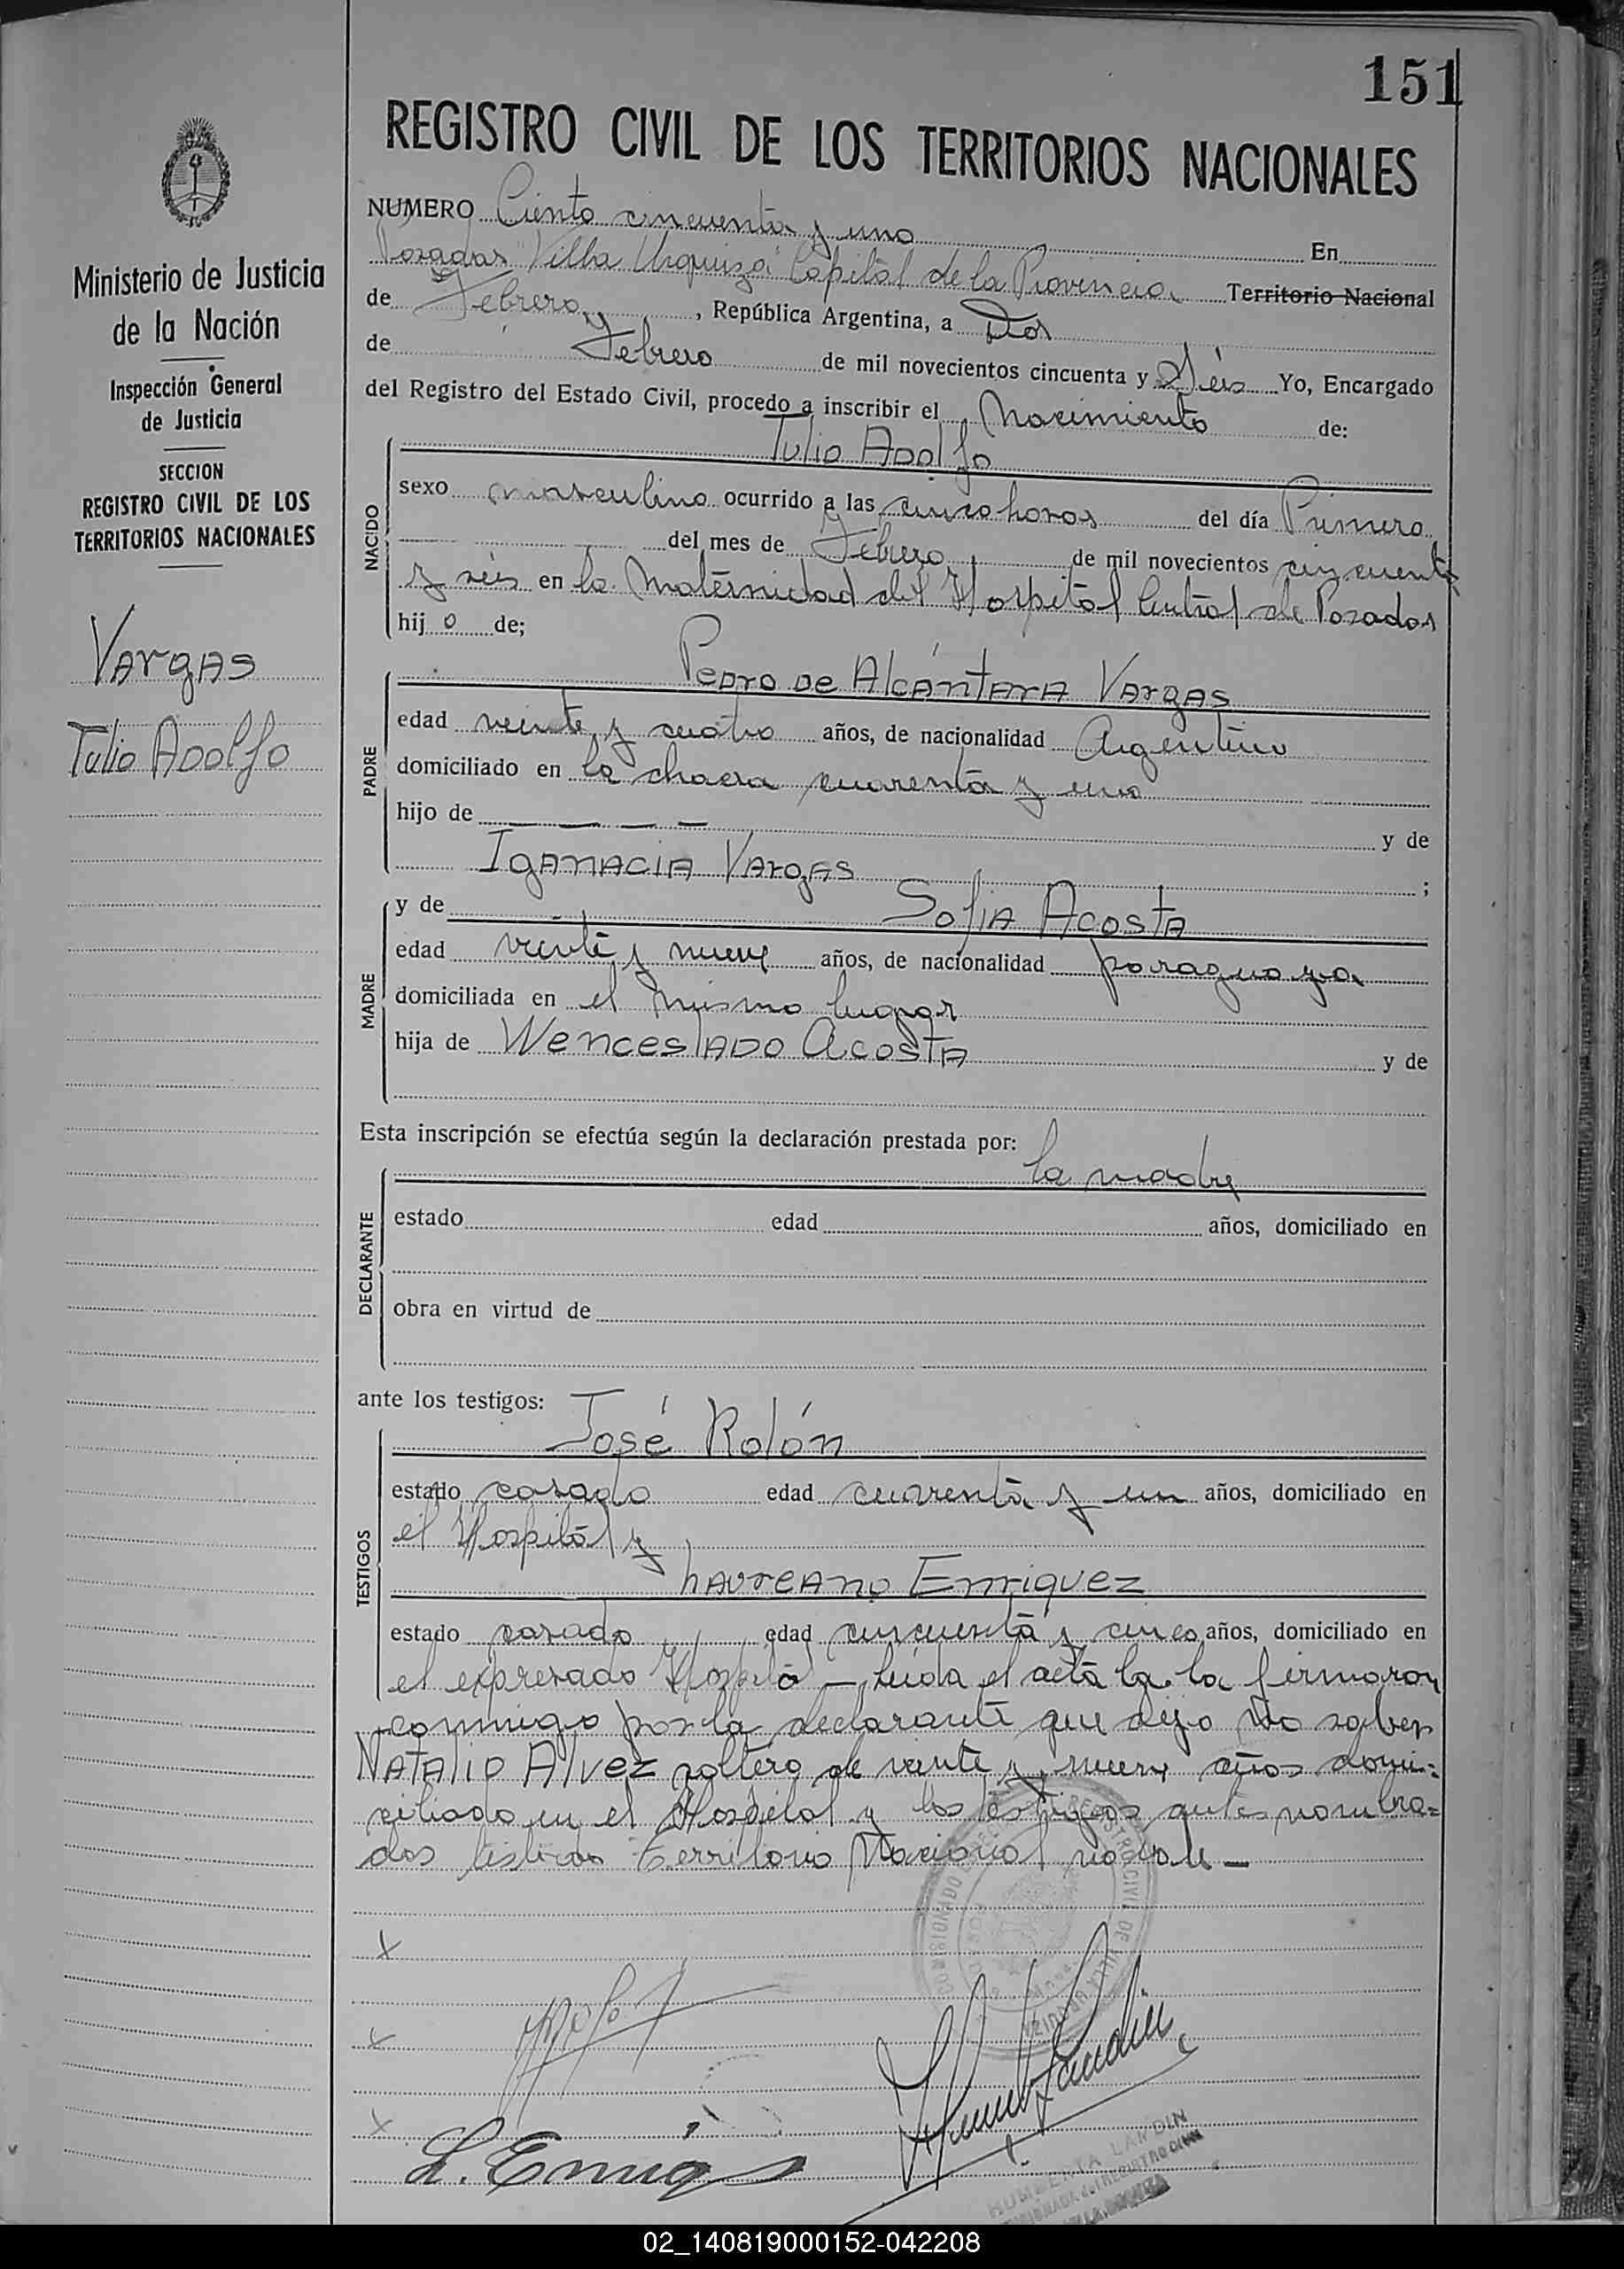 151
REGISTRO CIVIL DE LOS TERRITORIOS NACIONALES
Ministerio de Justicia
de la Nación
Inspección General
de Justicia
SECCION
REGISTRO CIVIL DE LOS
TERRITORIOS NACIONALES
Vargas
Tulio Adolfo
NUMERO Ciento cincuenta y uno En
Posadas "Villa Urquiza" Capital de la Provincia Territorio Nacional
de Febrero, República Argentina, a Dos
de Febrero de mil novecientos cincuenta y Séis Yo, Encargado
del Registro del Estado Civil, procedo a inscribir el Nacimiento de:
NACIDO
Tulio Adolfo
sexo masculino ocurrido a las cinco horas del día Primero
del mes de Febrero de mil novecientos cincuenta
y seis en la Maternidad del Hospital Central de Posadas
hijo de;
PADRE
Pedro de Alcántara Vargas
edad veinte y cuatro años, de nacionalidad Argentino
domiciliado en la chacra cuarenta y uno
hijo de — — — — y de
Iganacia Vargas ;
MADRE
y de Sofia Acosta
edad veinte y nueve años, de nacionalidad paraguaya
domiciliada en el mismo lugar
hija de Wenceslado Acosta y de
Esta inscripción se efectúa según la declaración prestada por:
la madre
DECLARANTE
estado edad años, domiciliado en
obra en virtud de
ante los testigos:
TESTIGOS
José Rolón
estado casado edad cuarenta y un años, domiciliado en
el Hospital y
Laureano Enriquez
estado casado edad cincuenta y cinco años, domiciliado en
el expresado Hospital — Leida el acta la la firmaron
conmigo por la declarante que dijo no saber
Natalio Alvez soltero de veinte y nueve años domi=
ciliado en el Hospital y los testigos antes nombra=
dos Territorio Nacional no vale —
REGISTRO CIVIL DE VILLA URQUIZA
x
x
x
L. Enriq
HUMBERTA LANDIN
02_140819000152-042208